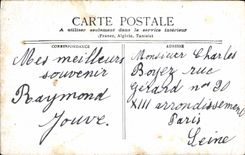 CARTE POSTALE
A utiliser seulement dans le service intérieur
(France, Algérie, Tunisie)
CORRESPONDANCE
Mes meilleurs
souvenir
Raymond
Jouve.
ADRESSE
Monsieur Charles
Boyez rue
Gérard nº 20
XIII arrondissement
Paris
Seine